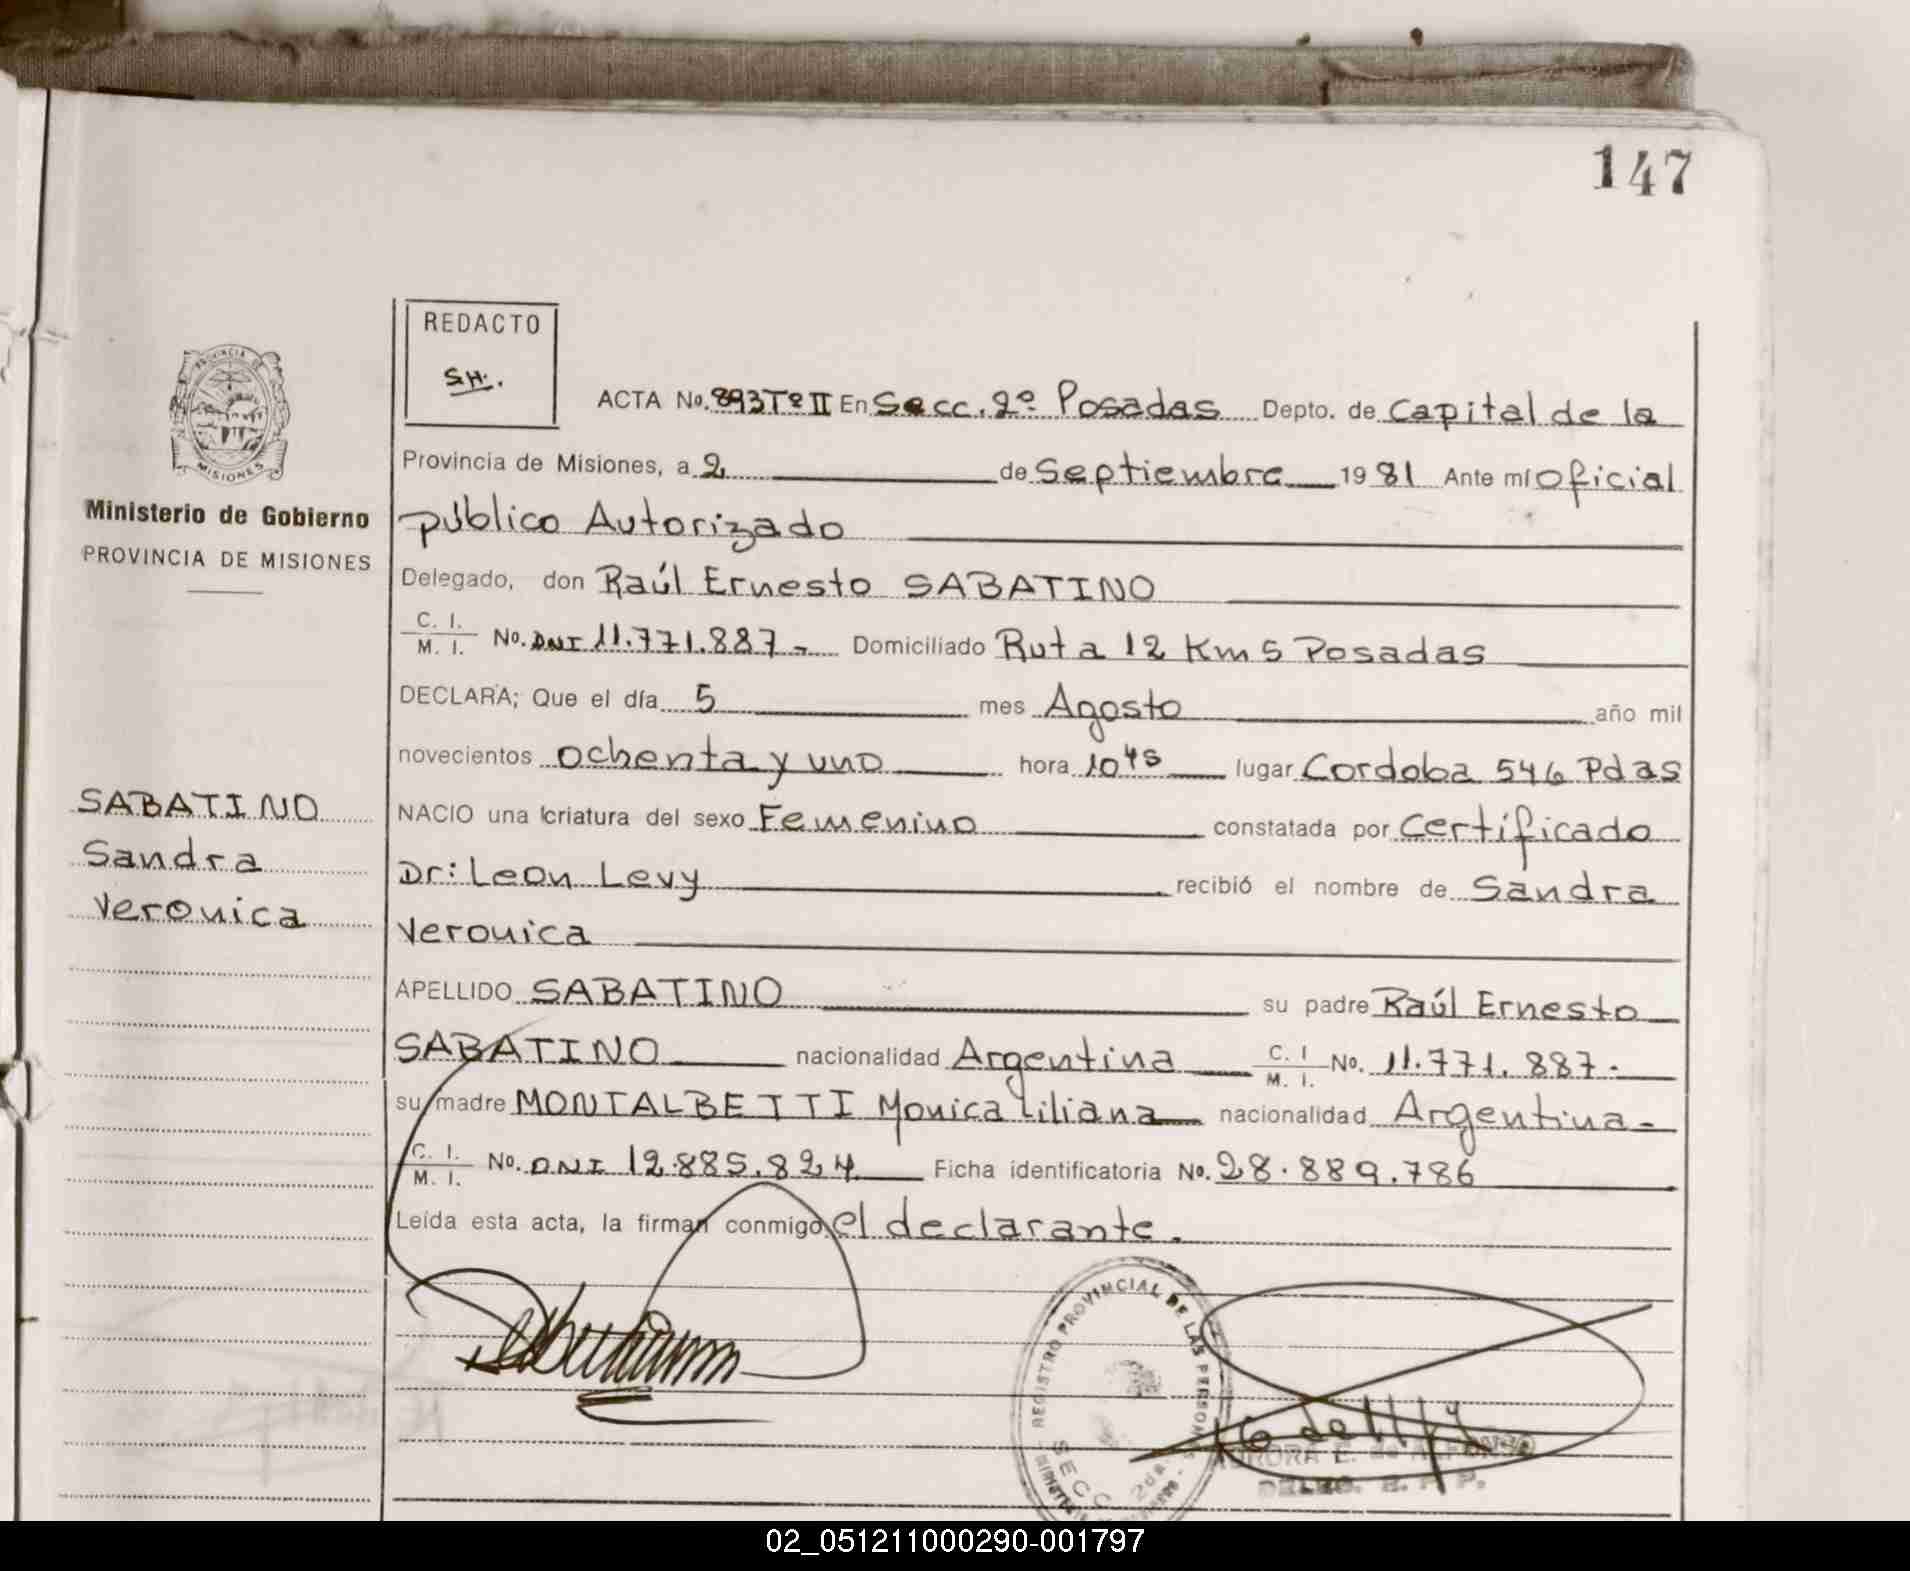 147
REDACTO
SH.
ACTA No. 893 Tº II En Secc. 2º Posadas Depto. de Capital de la
Provincia de Misiones, a 2 de Septiembre 1981 Ante mí Oficial
público Autorizado
Delegado, don Raúl Ernesto SABATINO
C. I.
M. I. No. DNI 11.771.887- Domiciliado Ruta 12 Km 5 Posadas
DECLARA; Que el día 5 mes Agosto año mil
novecientos ochenta y uno hora 10 45 lugar Cordoba 546 Pdas
NACIO una criatura del sexo Femenino constatada por Certificado
Dr: Leon Levy recibió el nombre de Sandra
Veronica
APELLIDO SABATINO su padre Raúl Ernesto
SABATINO nacionalidad Argentina C. I. M. I. No. 11.771.887.
su madre MONTALBETTI Monica Liliana nacionalidad Argentina-
C. I.
M. I. No. DNI 12.885.824 Ficha identificatoria No. 28.889.786
Leída esta acta, la firman conmigo el declarante.
PROVINCIA DE
MISIONES
Ministerio de Gobierno
PROVINCIA DE MISIONES
SABATINO
Sandra
Veronica
REGISTRO PROVINCIAL DE LAS PERSON
SECC 2da
AURORA E. de ALFONSO
02_051211000290-001797